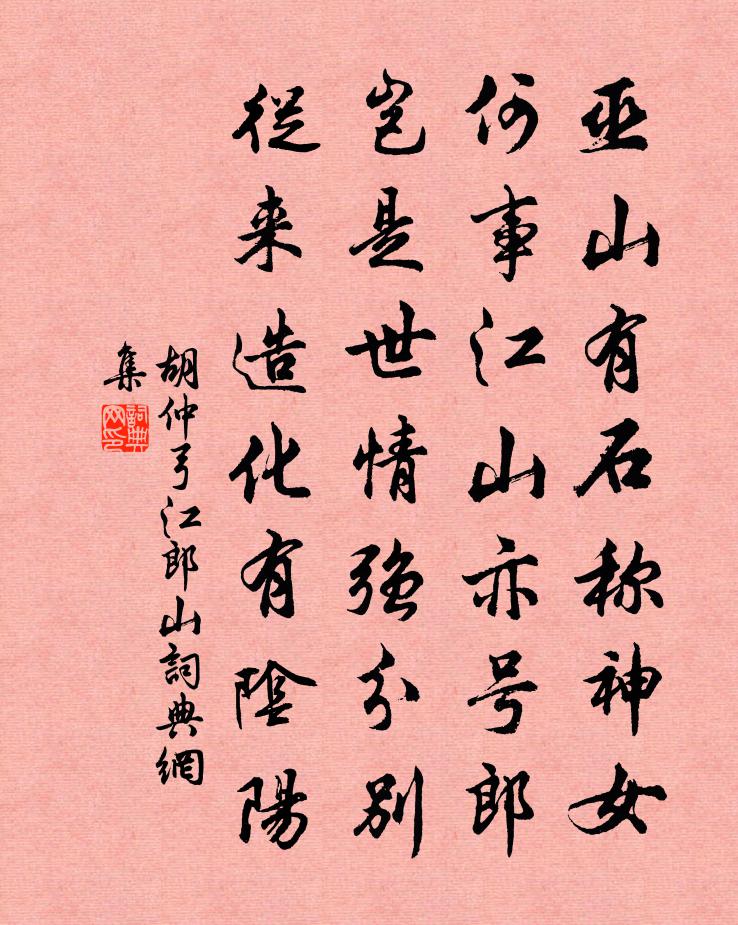 巫山有石称神女
何事江山亦号郎
岂是世情强分别
從来造化有陰陽
胡仲弓江郎山詞典網
集
詞典网印